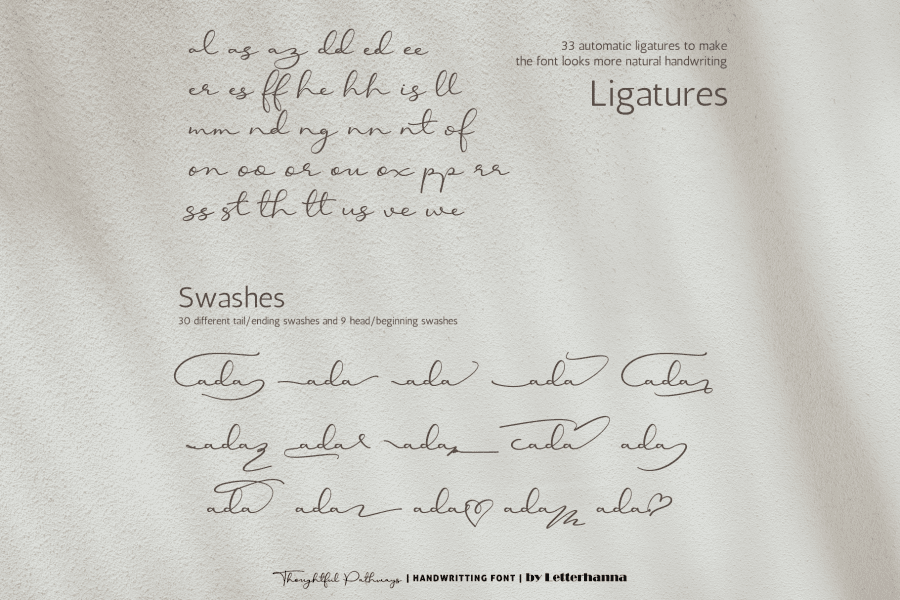 al as az dd ed ee
33 automatic ligatures to make
the font looks more natural handwriting
Ligatures
er es ff he hh is ll
mm nd ng nn nt of
on oo or ou ox pp rr
ss st th tt us ve we
Swashes
30 different tail/ending swashes and 9 head/beginning swashes
ada ada ada ada ada
ada ada ada cada ada
ada ada ada ada ada
Thoughtful Pathways | HANDWRITTING FONT | by Letterhanna